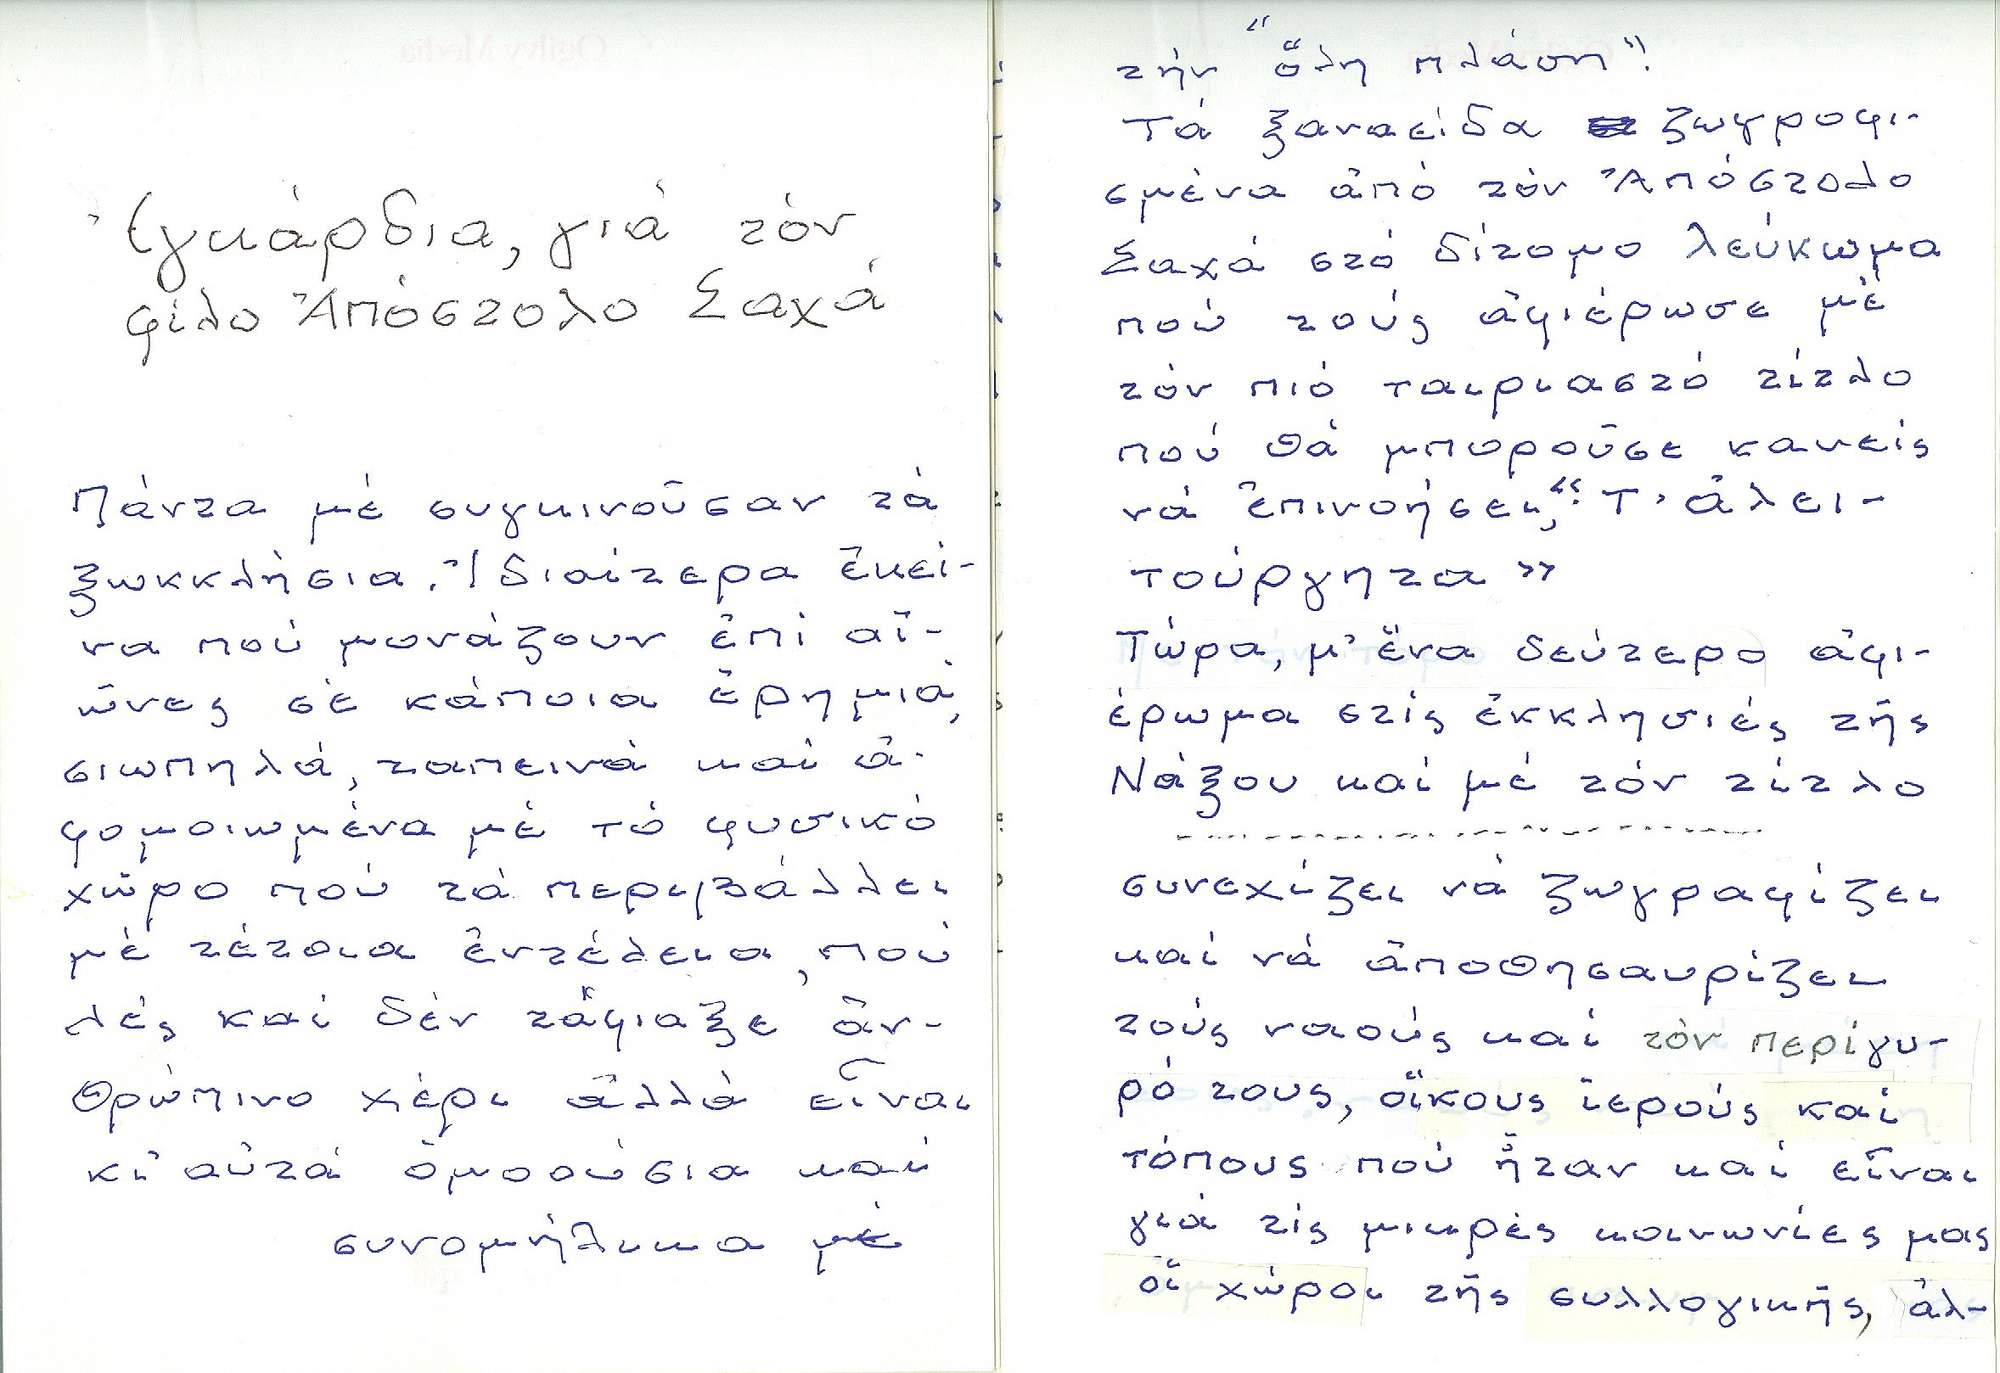 Ἐγκάρδια, γιά τόν
φίλο Ἀπόστολο Σαχά
Πάντα μέ συγκινοῦσαν τά
ξωκκλήσια. Ἰδιαίτερα ἐκεῖ-
να πού μονάζουν ἐπί αἰ-
ῶνες σέ κάποια ἐρημιά,
σιωπηλά, ταπεινά καί ἀ-
φομοιωμένα μέ τό φυσικό
χῶρο πού τά περιβάλλει
μέ τέτοια ἐντέλεια, πού
λές καί δέν τἄφιαξε ἀν-
θρώπινο χέρι ἀλλά εἶναι
κι' αὐτά ὁμοούσια καί
συνομήλικα μέ
τήν "ὅλη πλάση"!
Τά ξαναεῖδα ζωγραφι-
σμένα ἀπό τόν Ἀπόστολο
Σαχά στό δίτομο λεύκωμα
πού τούς ἀφιέρωσε μέ
τόν πιό ταιριαστό τίτλο
πού θά μποροῦσε κανείς
νά ἐπινοήσει, "Τ' ἀλει-
τούργητα"
Τώρα, μ' ἕνα δεύτερο ἀφι-
έρωμα στίς ἐκκλησιές τῆς
Νάξου καί μέ τόν τίτλο
....................
συνεχίζει νά ζωγραφίζει
καί νά ἀποθησαυρίζει
τούς ναούς καί τόν περίγυ-
ρό τους, οἴκους ἱερούς καί
τόπους πού ἦταν καί εἶναι
γιά τίς μικρές κοινωνίες μας
οἱ χῶροι τῆς συλλογικῆς, ἀλ-